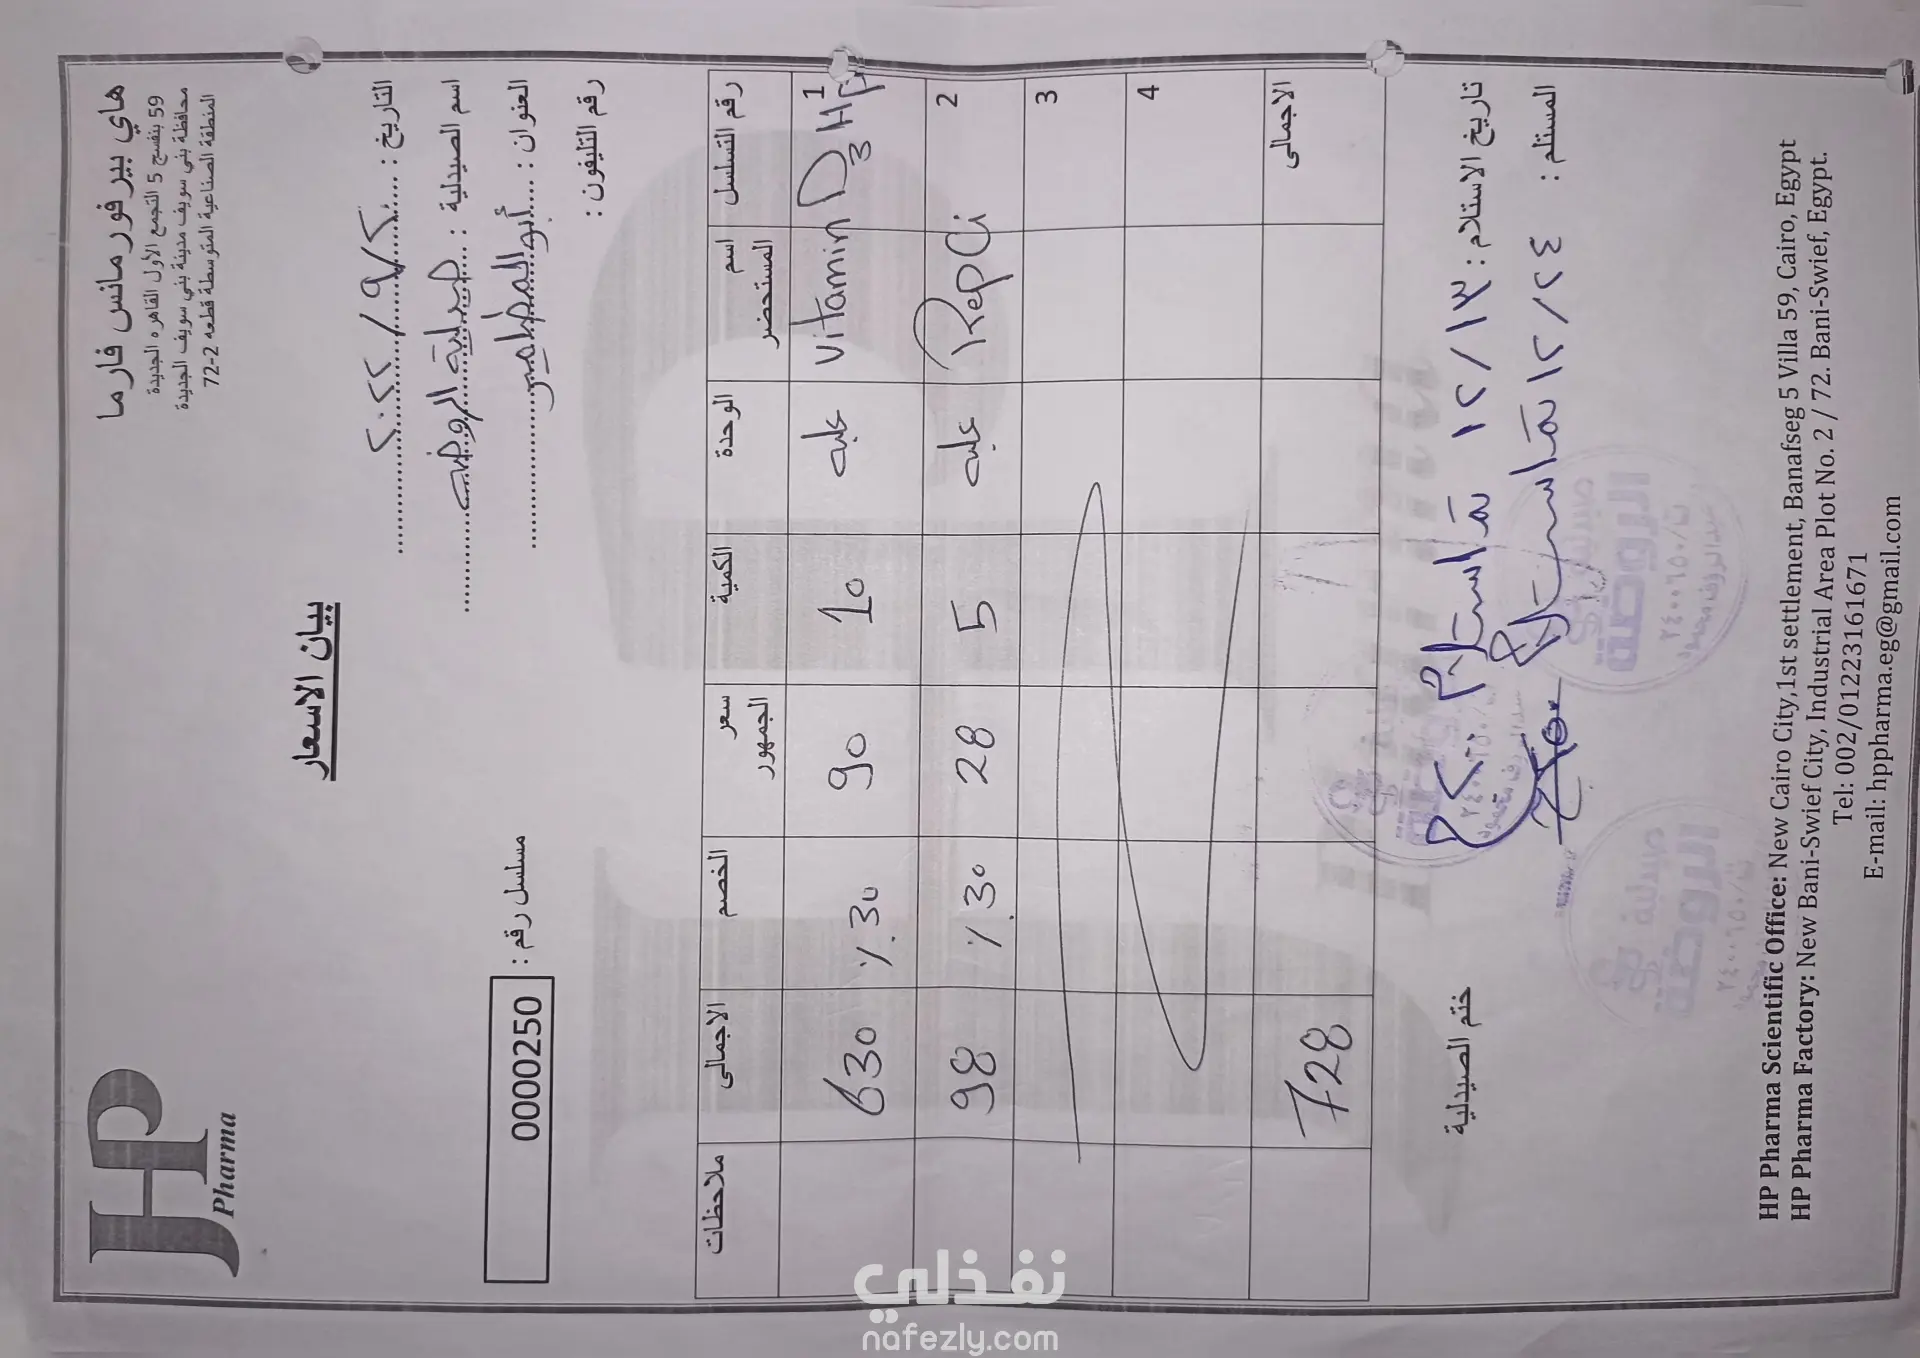 HP
Pharma
هاي بير فورمانس فارما
59 بنفسج 5 التجمع الأول القاهره الجديدة
محافظة بني سويف مدينة بني سويف الجديدة
المنطقة الصناعية المتوسطة قطعه 2-72
بيان الاسعار
التاريخ : ٢٠٢٢/٩/٢
اسم الصيدلية : صيدلية الروضه
مسلسل رقم : 0000250
العنوان : أبو المطامير
رقم التليفون :
رقم التسلسل اسم المستحضر الوحدة الكمية سعر الجمهور الخصم الاجمالى ملاحظات
1 Vitamin D3 HP علبه 10 90 ٪30 630
2 علبه 5 28 ٪30 98
3
4
الاجمالى 728
تاريخ الاستلام : ١٢/١٣
ختم الصيدلية
المستلم : ١٢/٢٤
HP Pharma Scientific Office: New Cairo City,1st settlement, Banafseg 5 Villa 59, Cairo, Egypt
HP Pharma Factory: New Bani-Swief City, Industrial Area Plot No. 2 / 72. Bani-Swief, Egypt.
Tel: 002/01223161671
E-mail: hppharma.eg@gmail.com
نفذلي
nafezly.com